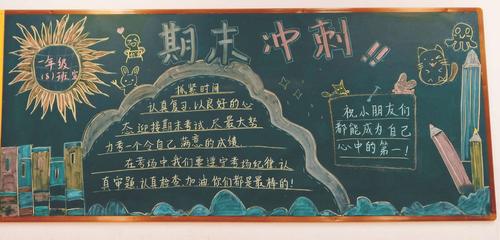 一年级
(8)班宣
期末冲刺!!
抓紧时间
认真复习,以良好的心
态,迎接期末考试,尽最大努
力考一个令自己满意的成绩.
在考场中我们要遵守考场纪律,认
真审题,认真检查,加油你们都是最棒的!
祝小朋友们
都能成为自己
心中的第一!